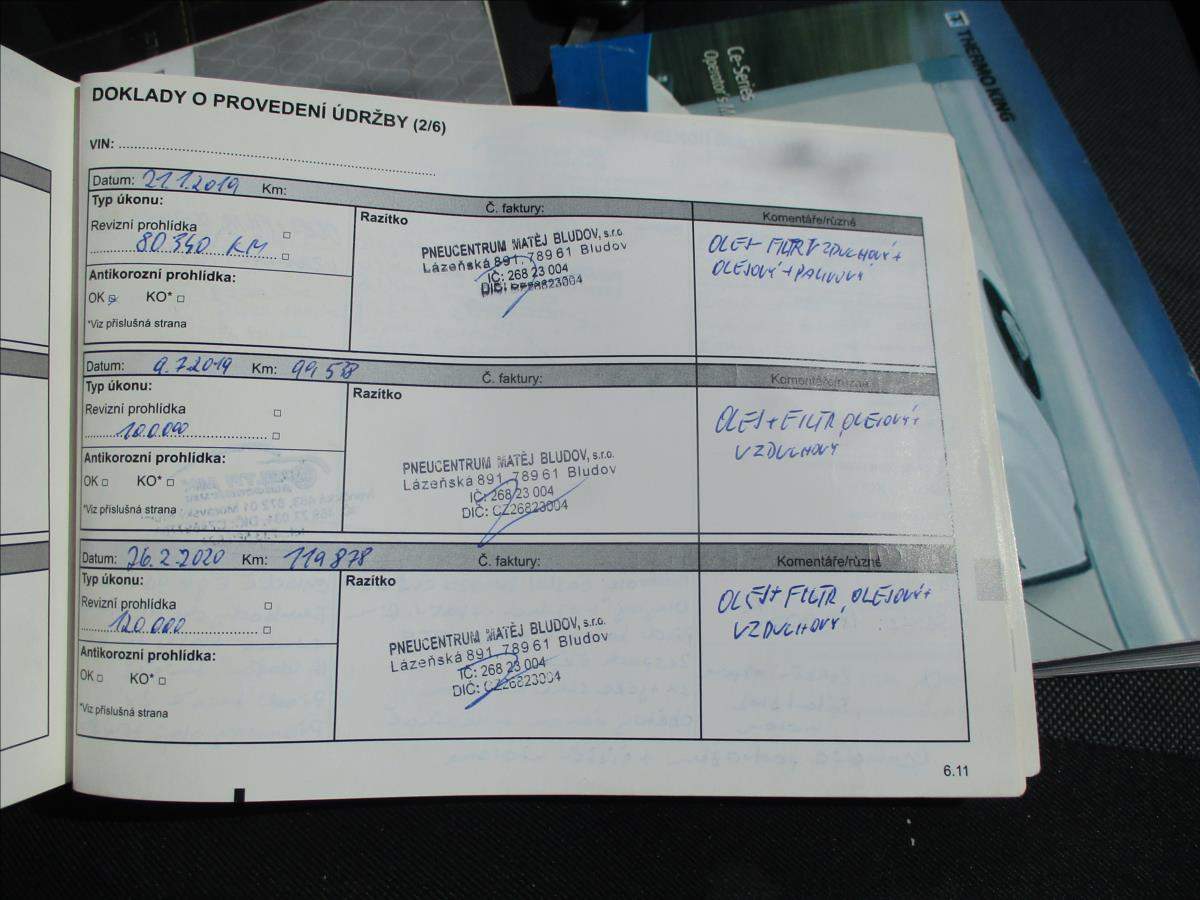 THERMO KING
Ce-Series
Operator's
DOKLADY O PROVEDENÍ ÚDRŽBY (2/6)
VIN:
Datum: 21.1.2019 Km: Č. faktury: Komentáře/různé
Typ úkonu:
Revizní prohlídka
80.340 KM
Antikorozní prohlídka:
OK KO*
*Viz příslušná strana
Razítko
PNEUCENTRUM MATĚJ BLUDOV, s.r.o.
Lázeňská 891, 789 61 Bludov
IČ: 268 23 004
DIČ: CZ26823004
OLEJ+ FILTR VZDUCHOVÝ+
OLEJOVÝ+PALIVOVÝ
Datum: 9.7.2019 Km: 99 538 Č. faktury: Komentáře/různé
Typ úkonu:
Revizní prohlídka
100.000
Antikorozní prohlídka:
OK KO*
*Viz příslušná strana
Razítko
PNEUCENTRUM MATĚJ BLUDOV, s.r.o.
Lázeňská 891, 789 61 Bludov
IČ: 268 23 004
DIČ: CZ26823004
OLEJ+FILTR OLEJOVÝ+
VZDUCHOVÝ
Datum: 26.2.2020 Km: 119 878 Č. faktury: Komentáře/různé
Typ úkonu:
Revizní prohlídka
120.000
Antikorozní prohlídka:
OK KO*
*Viz příslušná strana
Razítko
PNEUCENTRUM MATĚJ BLUDOV, s.r.o.
Lázeňská 891, 789 61 Bludov
IČ: 268 23 004
DIČ: CZ26823004
OLEJ+ FILTR OLEJOVÝ+
VZDUCHOVÝ
6.11